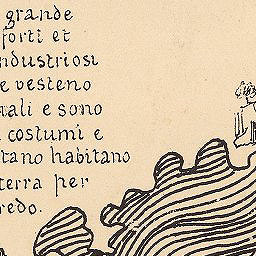 grande
forti et
ndustriosi
e vesteno
ali e sono
costumi e
tano habitano
terra per
redo.